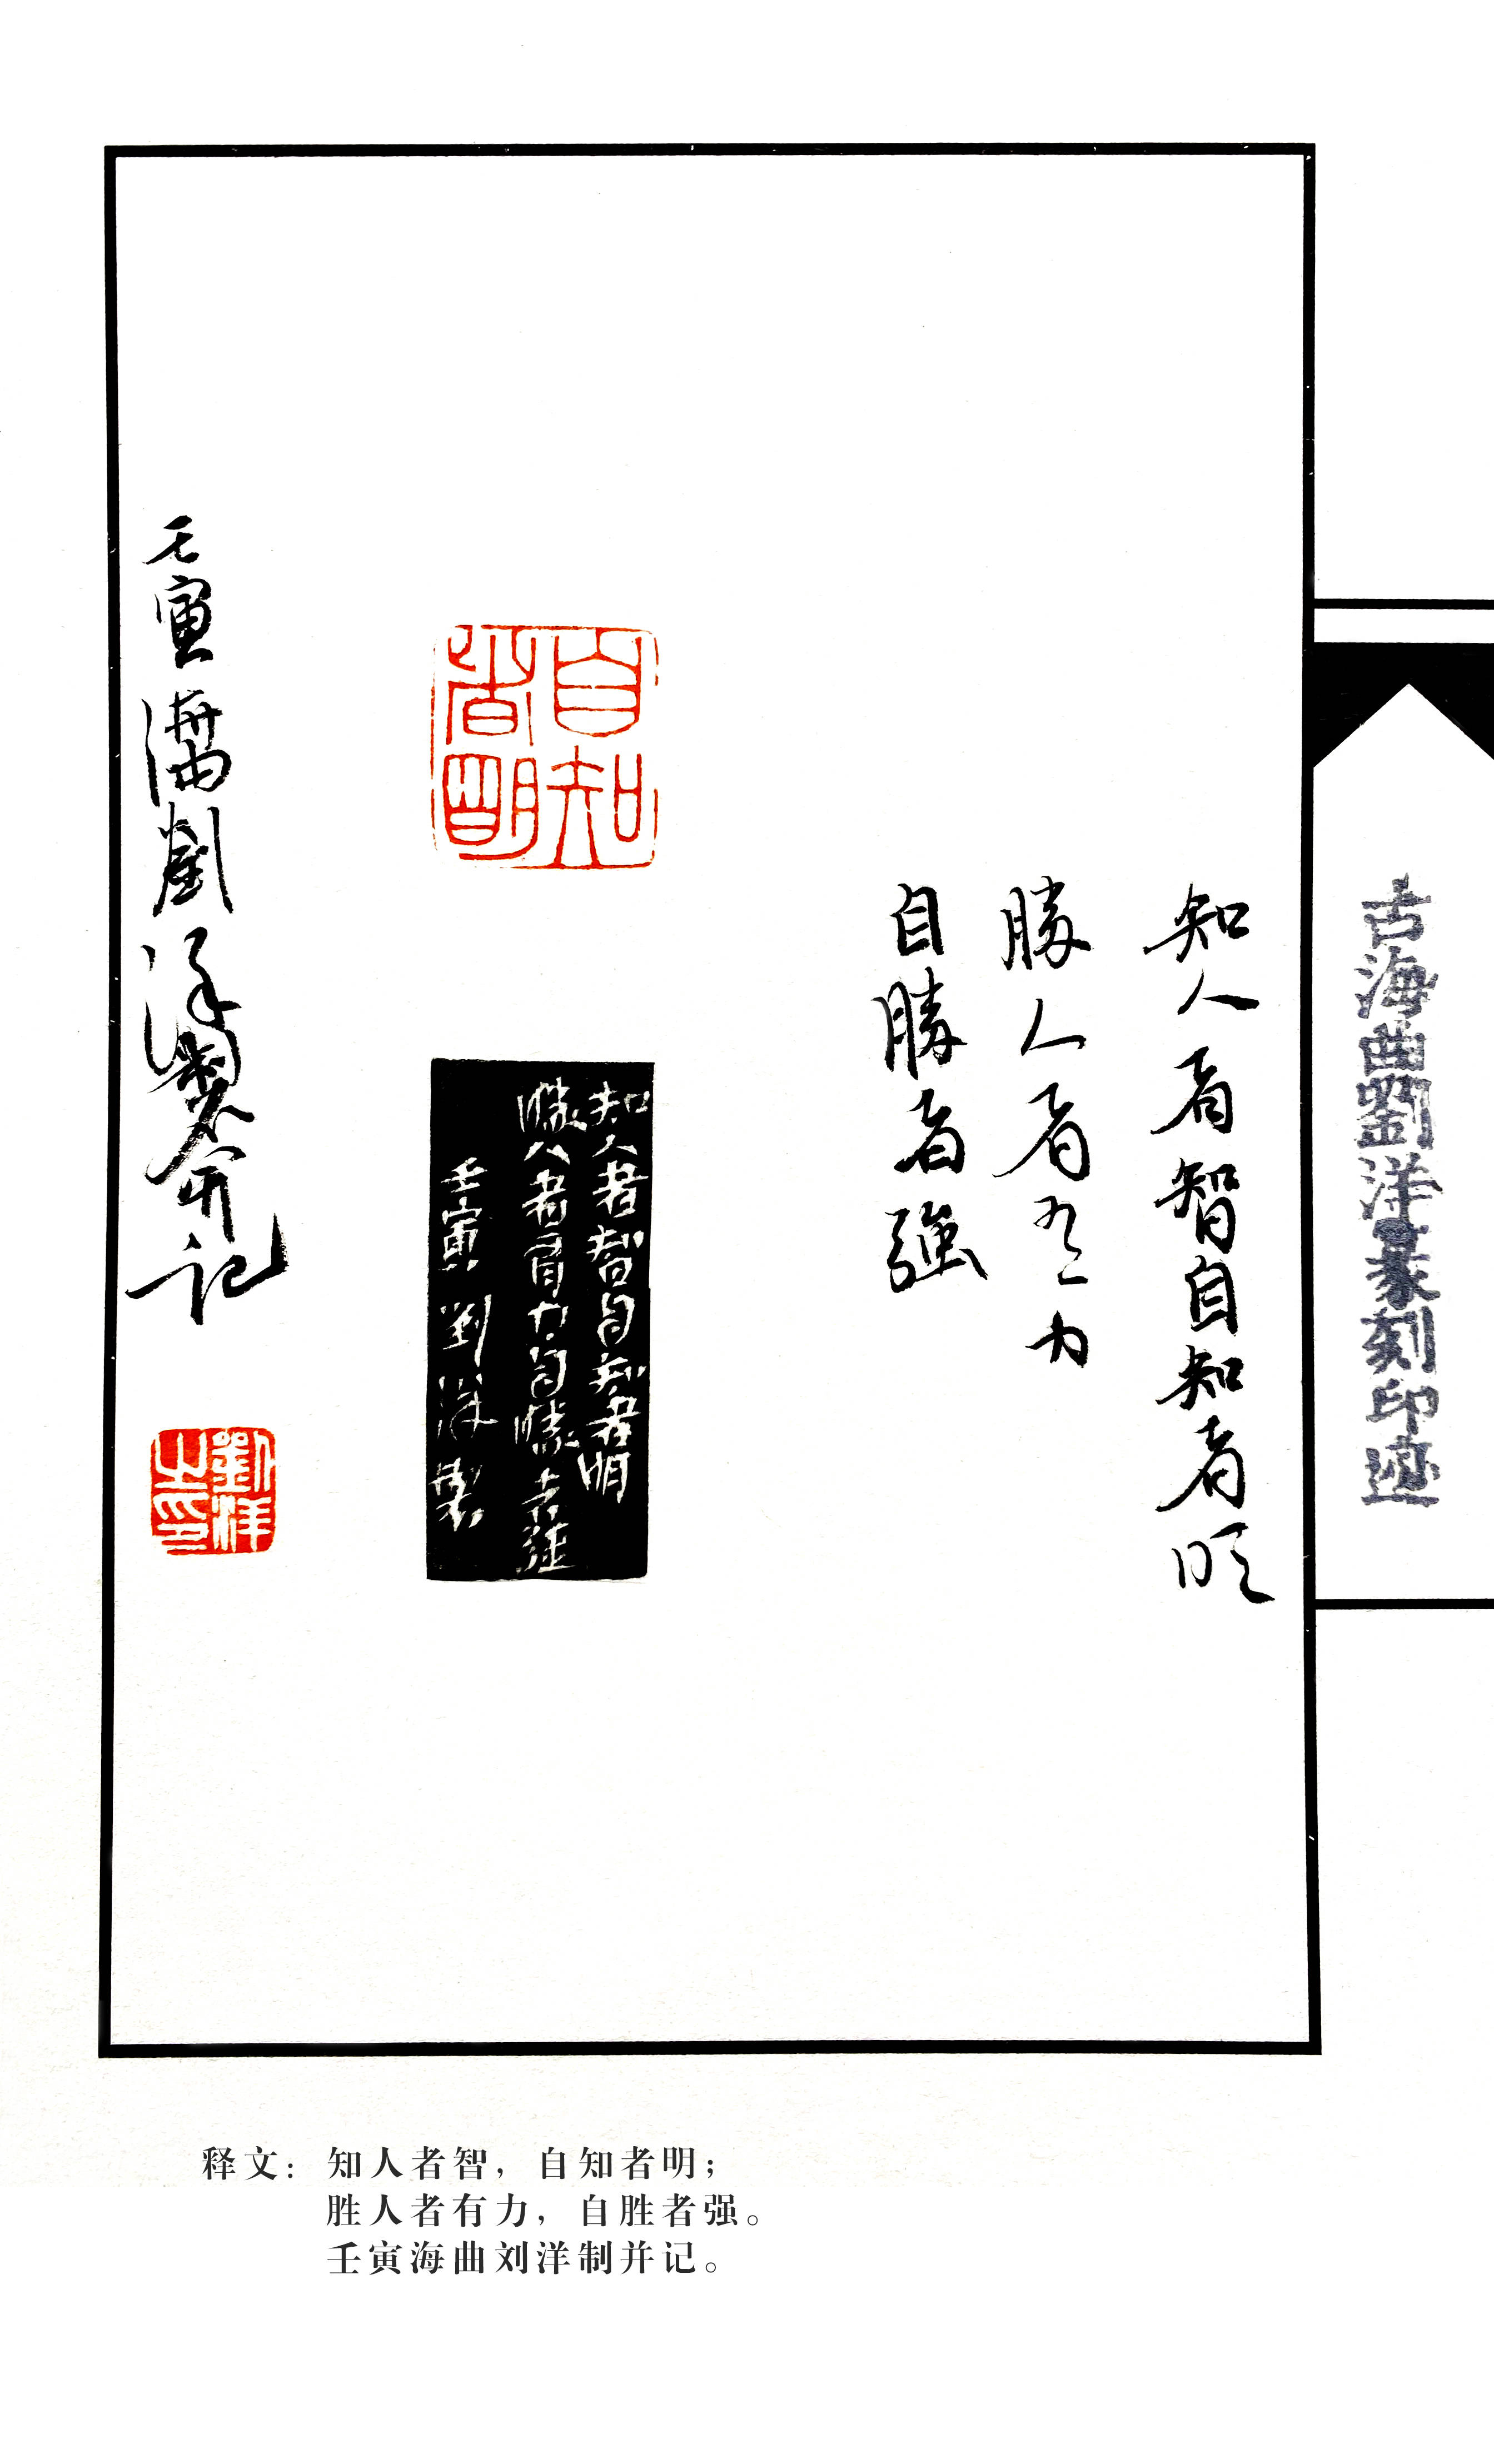 古海曲劉洋篆刻印迹
知人者智自知者明
勝人者有力
自勝者強
自知者明
知人者智自知者明
勝人者有力自勝者強
壬寅劉洋製
壬寅海曲劉洋製并記
劉洋之印
释文：知人者智，自知者明；
胜人者有力，自胜者强。
壬寅海曲刘洋制并记。